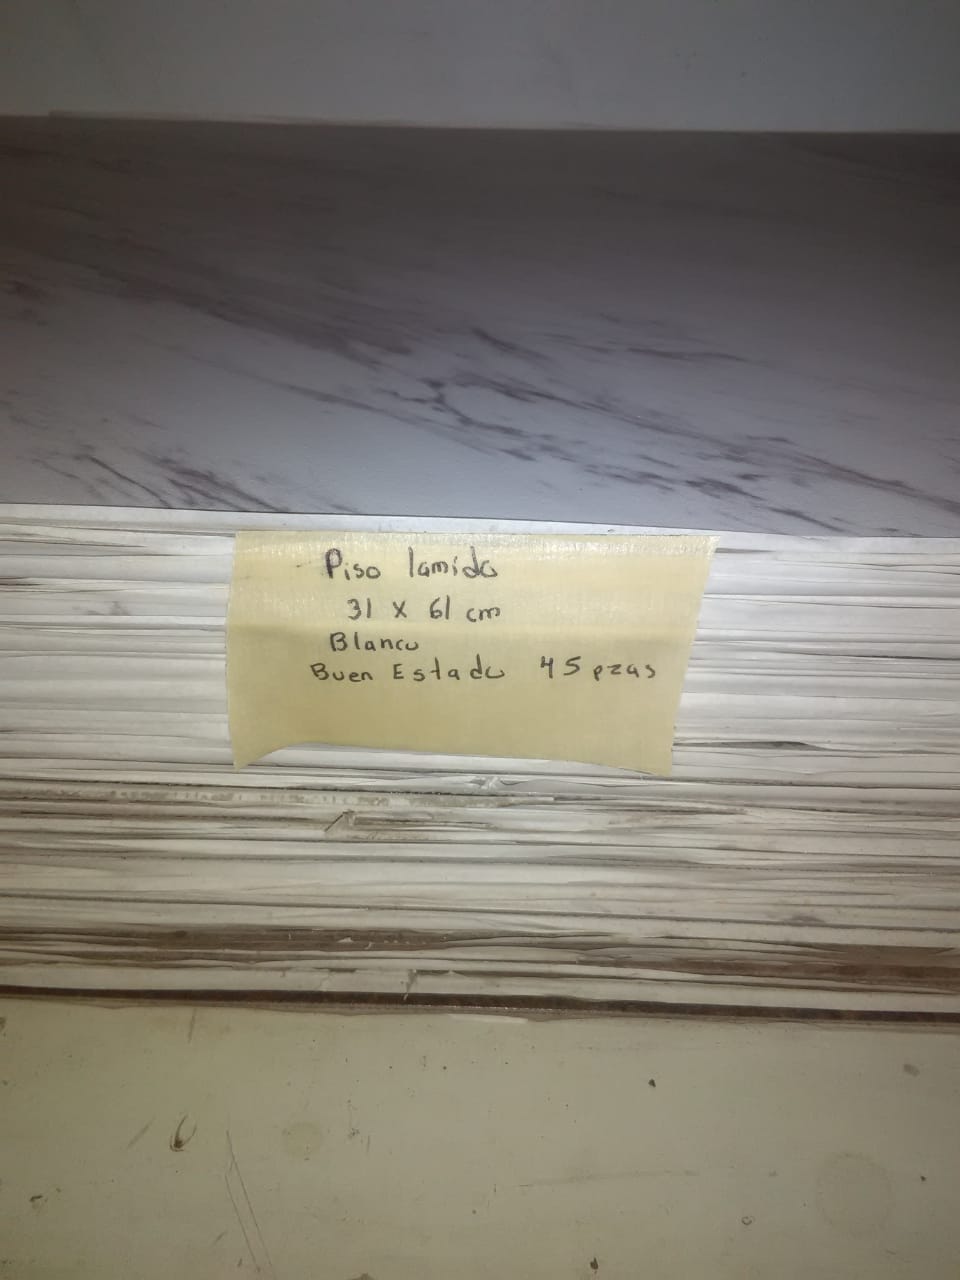 Piso lamido
31 x 61 cm
Blanco
Buen Estado 45 pzas